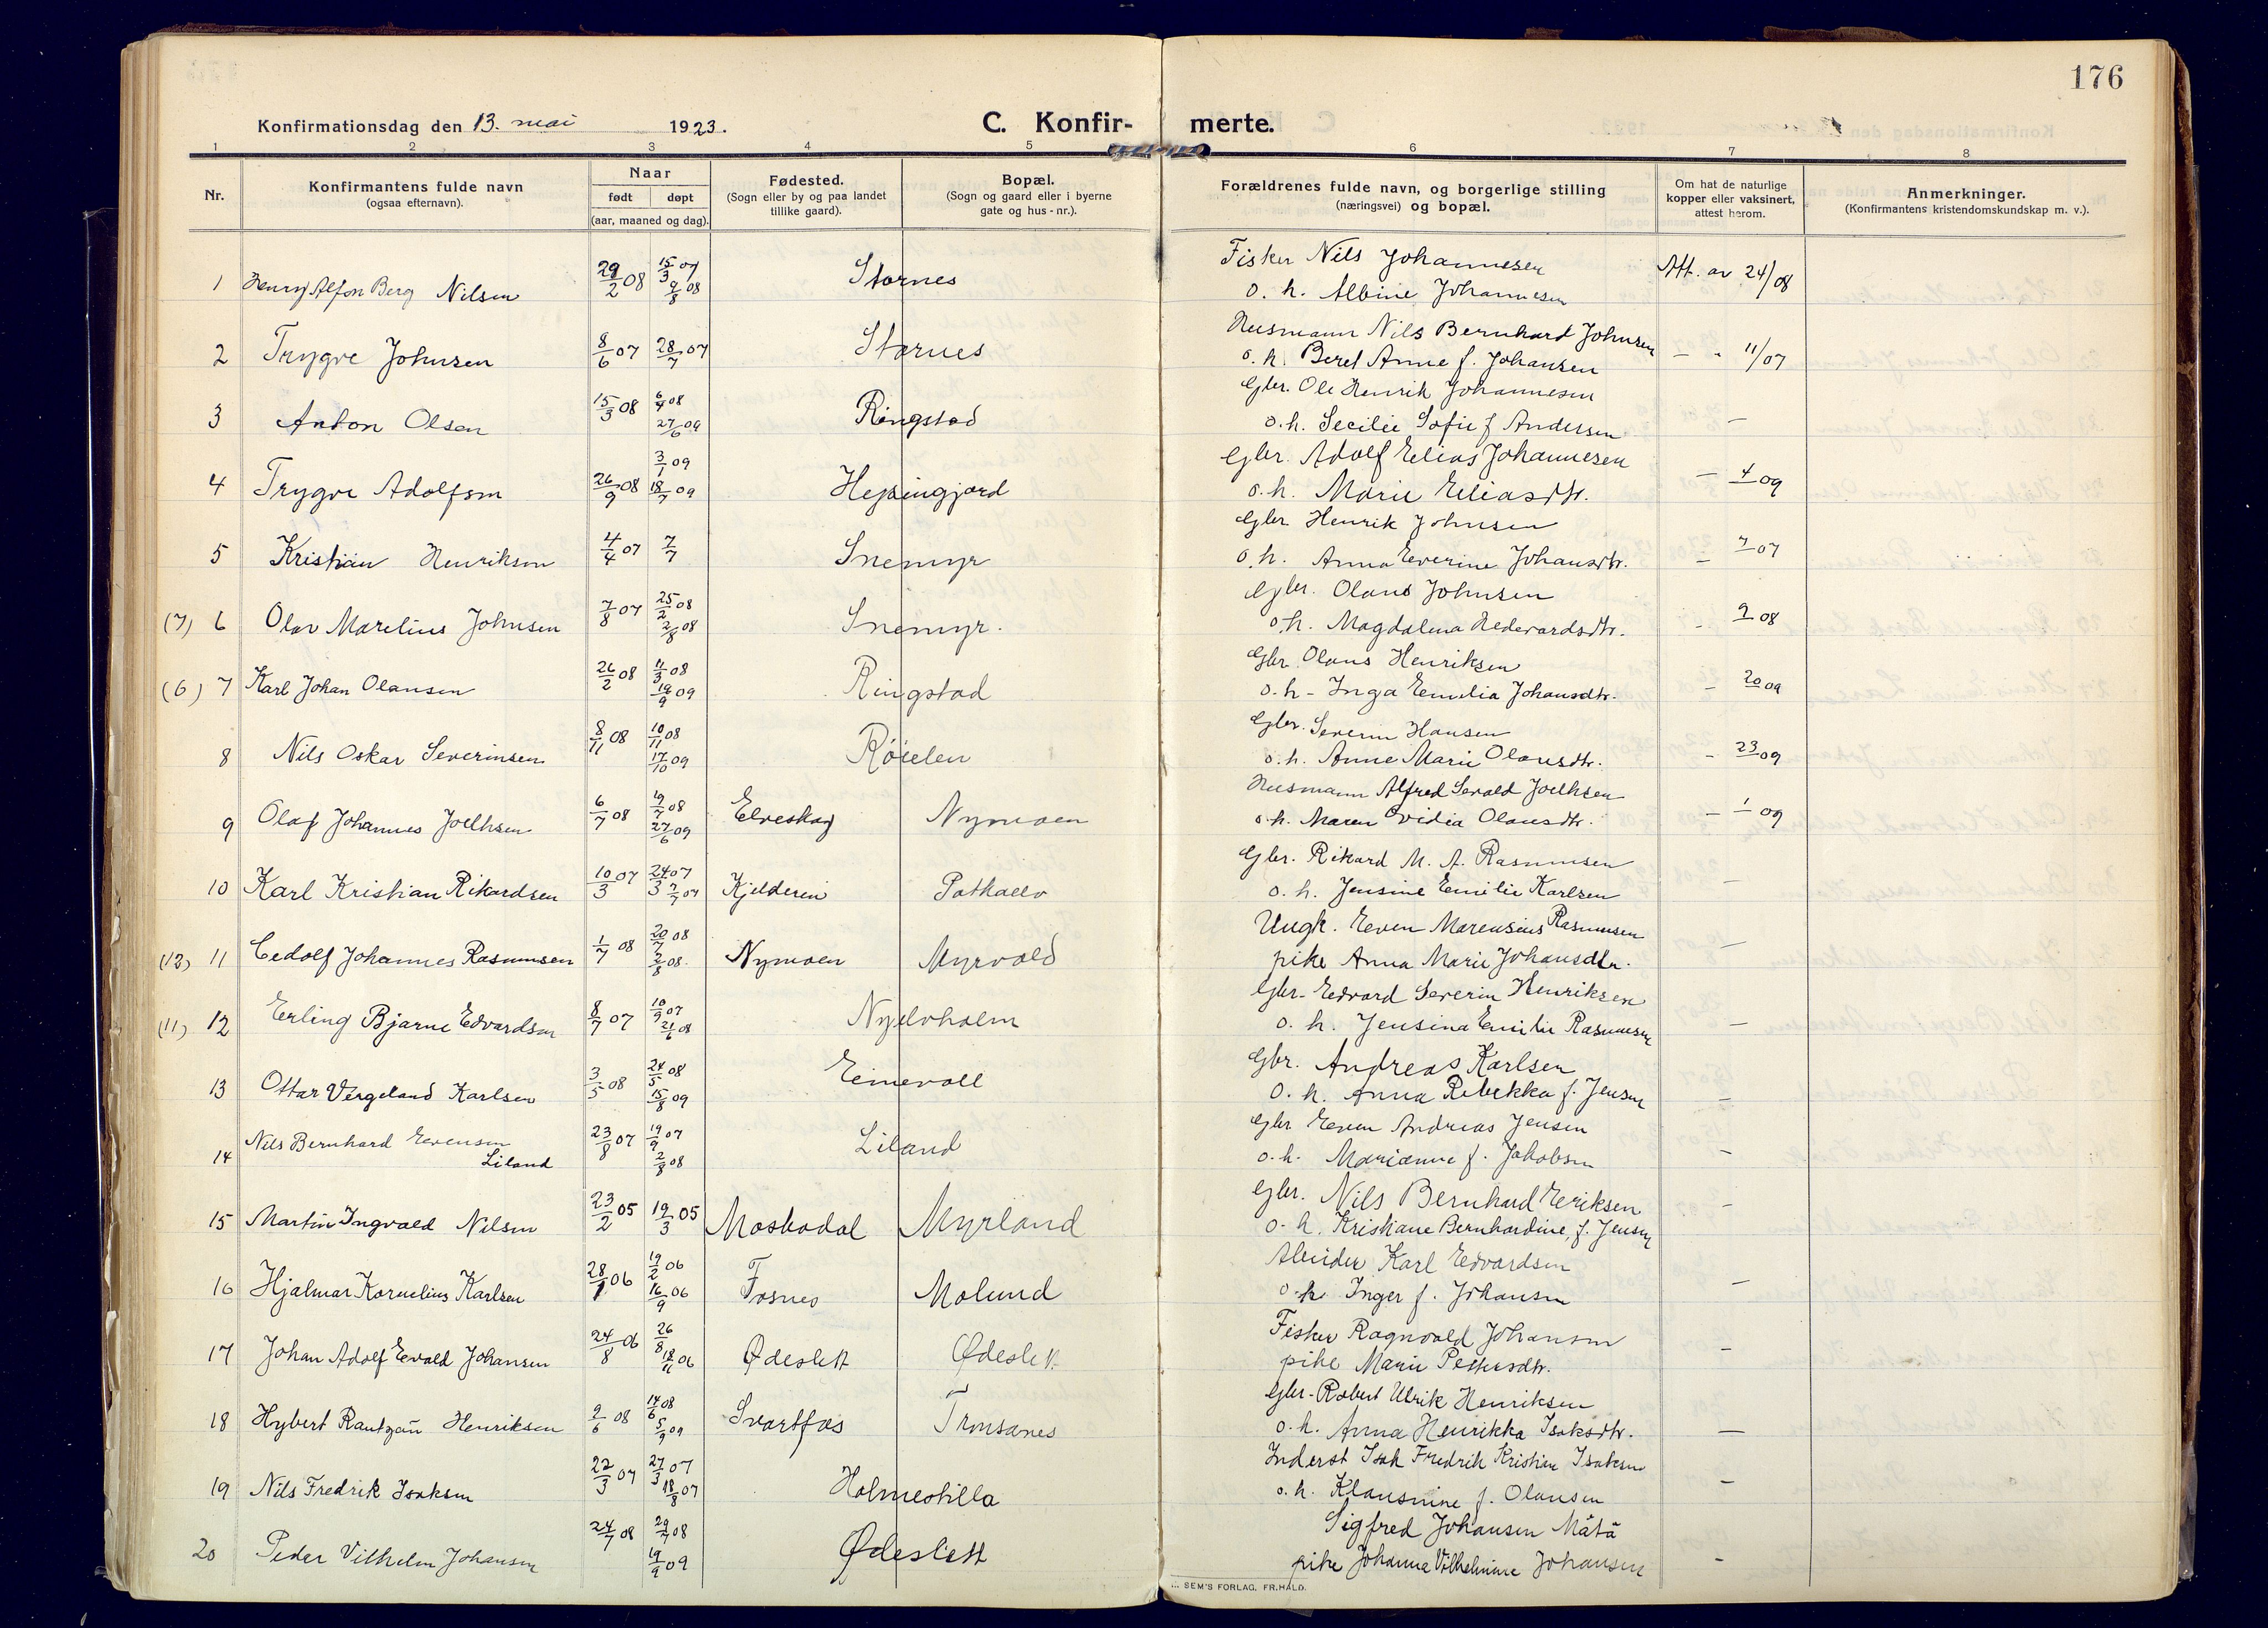 176
Konfirmationsdag den 13. mai 1923.
C. Konfir- merte.
1 2 3 4 5 6 7 8
Nr.
Konfirmantens fulde navn
(ogsaa efternavn).
Naar
født døpt
(aar, maaned og dag).
Fødested.
(Sogn eller by og paa landet
tillike gaard).
Bopæl.
(Sogn og gaard eller i byerne
gate og hus-nr.).
Forældrenes fulde navn, og borgerlige stilling
(næringsvei) og bopæl.
Om hat de naturlige
kopper eller vaksinert,
attest herom.
Anmerkninger.
(Konfirmantens kristendomskundskap m. v.).
1 Henry Alfon Berg Nilsen 29/2 08 15/3 07 9/8 08 Stornes Fisker Nils Johannesen Att. av 24/08
o. h. Albine Johannesen
2 Trygve Johnsen 8/6 07 28/7 07 Stornes Husmann Nils Bernhard Johnsen — " 11/07
o. h. Beret Anne f. Johansen
3 Anton Olsen 15/3 08 6/4 08 27/6 09 Ringstad Gbr. Ole Henrik Johannesen —
o. h. Secilie Sofie f Andersen
4 Trygve Adolfsen 26/9 08 3/1 09 18/7 09 Hepsingjord Gbr. Adolf Elias Johannesen — 4/09
o. h. Marie Eliasdtr.
5 Kristian Henriksen 4/4 07 7/7 Snemyr Gbr. Henrik Johnsen — 7/07
o. h. Anna Everine Johansdtr.
(7) 6 Olav Marelius Johnsen 7/8 07 25/2 08 2/8 08 Snemyr. Gbr. Olaus Johnsen - 9/08
o. h. Magdalena Hedevardsdtr.
(6) 7 Karl Johan Olausen 26/2 08 11/3 08 19/9 09 Ringstad Gbr Olaus Henriksen - 20/09
o. h - Inga Emilia Johansdtr.
8 Nils Oskar Severinsen 8/11 08 10/11 08 17/10 09 Røielen Gbr. Severin Hansen - 23/09
o. h. Anne Marie Olausdtr.
9 Olaf Johannes Joelhsen 6/7 08 19/7 08 27/6 09 Elveskog Nymoen Husmann Alfred Sevald Joelhsen — 1/09
o. h. Maren Ovidia Olausdtr.
10 Karl Kristian Rikardsen 10/3 07 24/3 07 7/7 07 Kjelderen Pothallo Gbr. Rikard M. A. Rasmusen —
o. h. Jensine Emilie Karlsen
(12) 11 Cedolf Johannes Rasmusen 1/7 08 20/7 08 2/8 08. Nymoen Myrvold Ungk. Even Marensius Rasmusen —
pike Anna Marie Johansdtr.
(11) 12 Erling Bjarne Edvardsen 8/7 07 10/9 07 21/6 08 Nyelvholm Gbr- Edvard Severin Henriksen —
o. h. Jensina Emilie Rasmusen
13 Ottar Vergeland Karlsen 3/5 08 24/5 08 15/8 09 Einevoll Gbr. Andreas Karlsen —
O. h. Anna Rebekka f. Jensen
14 Nils Bernhard Evensen 23/8 07 19/9 07 2/8 08 Liland Gbr Even Andreas Jensen —
Liland o. h. Marianne f. Jakobsen
15 Martin Ingvald Nilsen 23/2 05 19/3 05 Moskodal Myrland Gbr. Nils Bernhard Eriksen —
o. h. Kristiane Bernhardine, f. Jensen
16 Hjalmar Kornelius Karlsen 28/1 06 19/2 06 16/9 06 Fosnes Molund Arbeider Karl Edvardsen —
o. h. Inger f. Johansen
17 Johan Adolf Evald Johansen 24/8 06 26/8 18/11 06 Ødeslett Ødeslett Fisker Ragnvald Johansen —
pike Marie Pettersdtr.
18 Hybert Rantzau Henriksen 9/6 08 14/6 08 5/9 09 Svartfos Tronsanes Gbr- Robert Ulrik Henriksen —
o. h. Anna Henrikka Isaksdtr.
19 Nils Fredrik Isaksen 22/3 07 27/3 07 18/8 07 Holmestilla Inderst Isak Fredrik Kristian Isaksen —
o. h. Klausmine f. Olausen
20 Peder Vilhelm Johansen 24/7 08 29/7 08 19/9 09 Ødeslett Sigfred Johansen Måtå —
pike Johanna Vilhelmine Johansen
SEM'S FORLAG, FR.HALD.